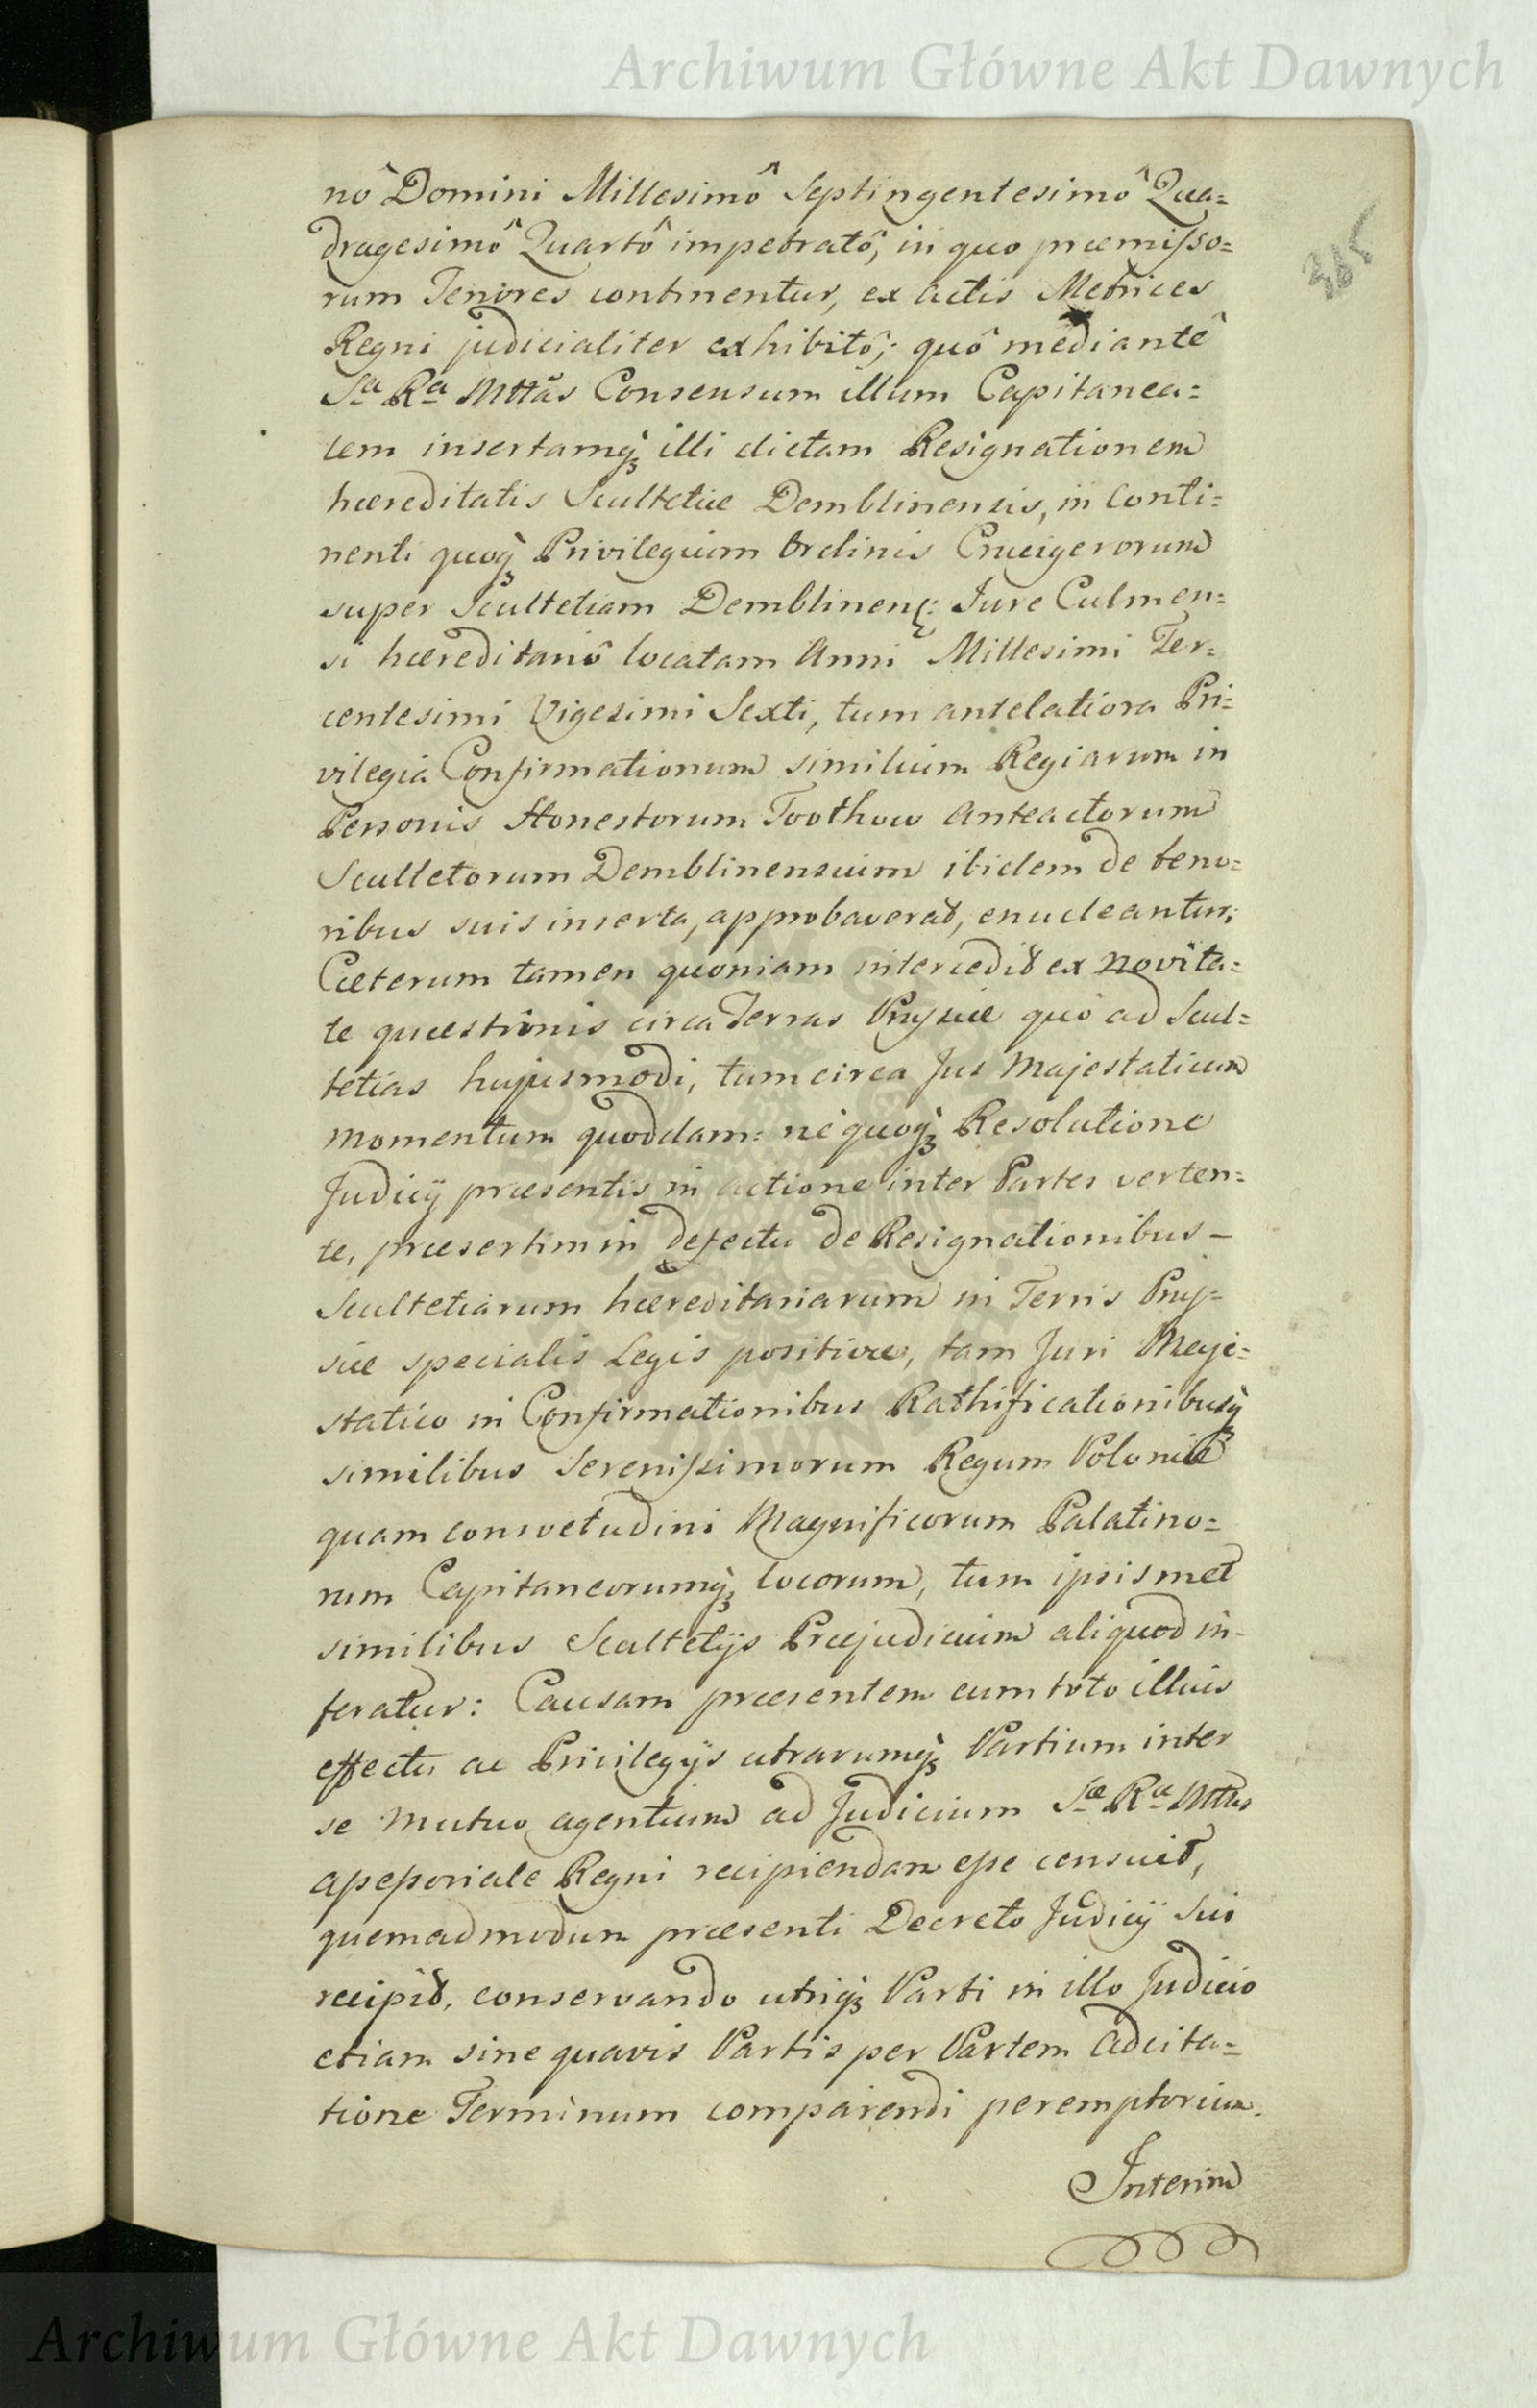 Archiwum Główne Akt Dawnych
nô Domini Millesimô Septingentesimô Qua=
dragesimô Quartô impetratô, in quo præmisso=
rum Tenores continentur, ex actis Metrices
Regni judicialiter exhibitô; quô mediante
Sa Ra Mttas Consensum illum Capitanea=
lem insertamq́ illi dictam Resignationem
hæreditatis Scultetiæ Demblinensis, in Conti=
nenti quoq́ Privilegium Ordinis Crucigerorum
super Scultetiam Demblinens: Jure Culmen=
si hæreditariô locatam Anni Millesimi Ter=
centesimi Vigesimi Sexti, tum antelatiora Pri=
vilegia Confirmationum similium Regiarum in
Personis Honestorum Toothow Anteactorum
Scultetorum Demblinensium ibidem de teno=
ribus suis inserta, approbaverat, enucleantur;
Cæterum tamen quoniam intercedit ex novita=
te quæstionis circa Terras Prussiæ quo ad Scul=
tetias hujusmodi, tum circa Jus Majestaticum
momentum quoddam: ne quoq́ Resolutione
Judicij præsentis in actione inter Partes verten=
te, præsertim in defectu de Resignationibus –
Scultetiarum hæreditariarum in Terris Prus=
siæ specialis Legis positivæ, tam Juri Maje=
statico in Confirmationibus Rathificationibusq́
similibus Serenissimorum Regum Poloniæ
quam consvetudini Magnificorum Palatino=
rum Capitaneorumq́ locorum, tum ipsismet
similibus Scultetijs Præjudicium aliquod in-
feratur: Causam præsentem cum toto illius
effectu ac Privilegijs utrarumq́ Partium inter
se mutuo agentium ad Judicium Sæ Ræ Mttis
assessoriale Regni recipiendam esse censuit,
quemadmodum præsenti Decreto Judicij sui
recipit, conservando utriq́ Parti in illo Judicio
etiam sine quavis Partis per Partem adcita=
tione Terminum comparendi peremptorium.
Interim
365
Archiwum Główne Akt Dawnych